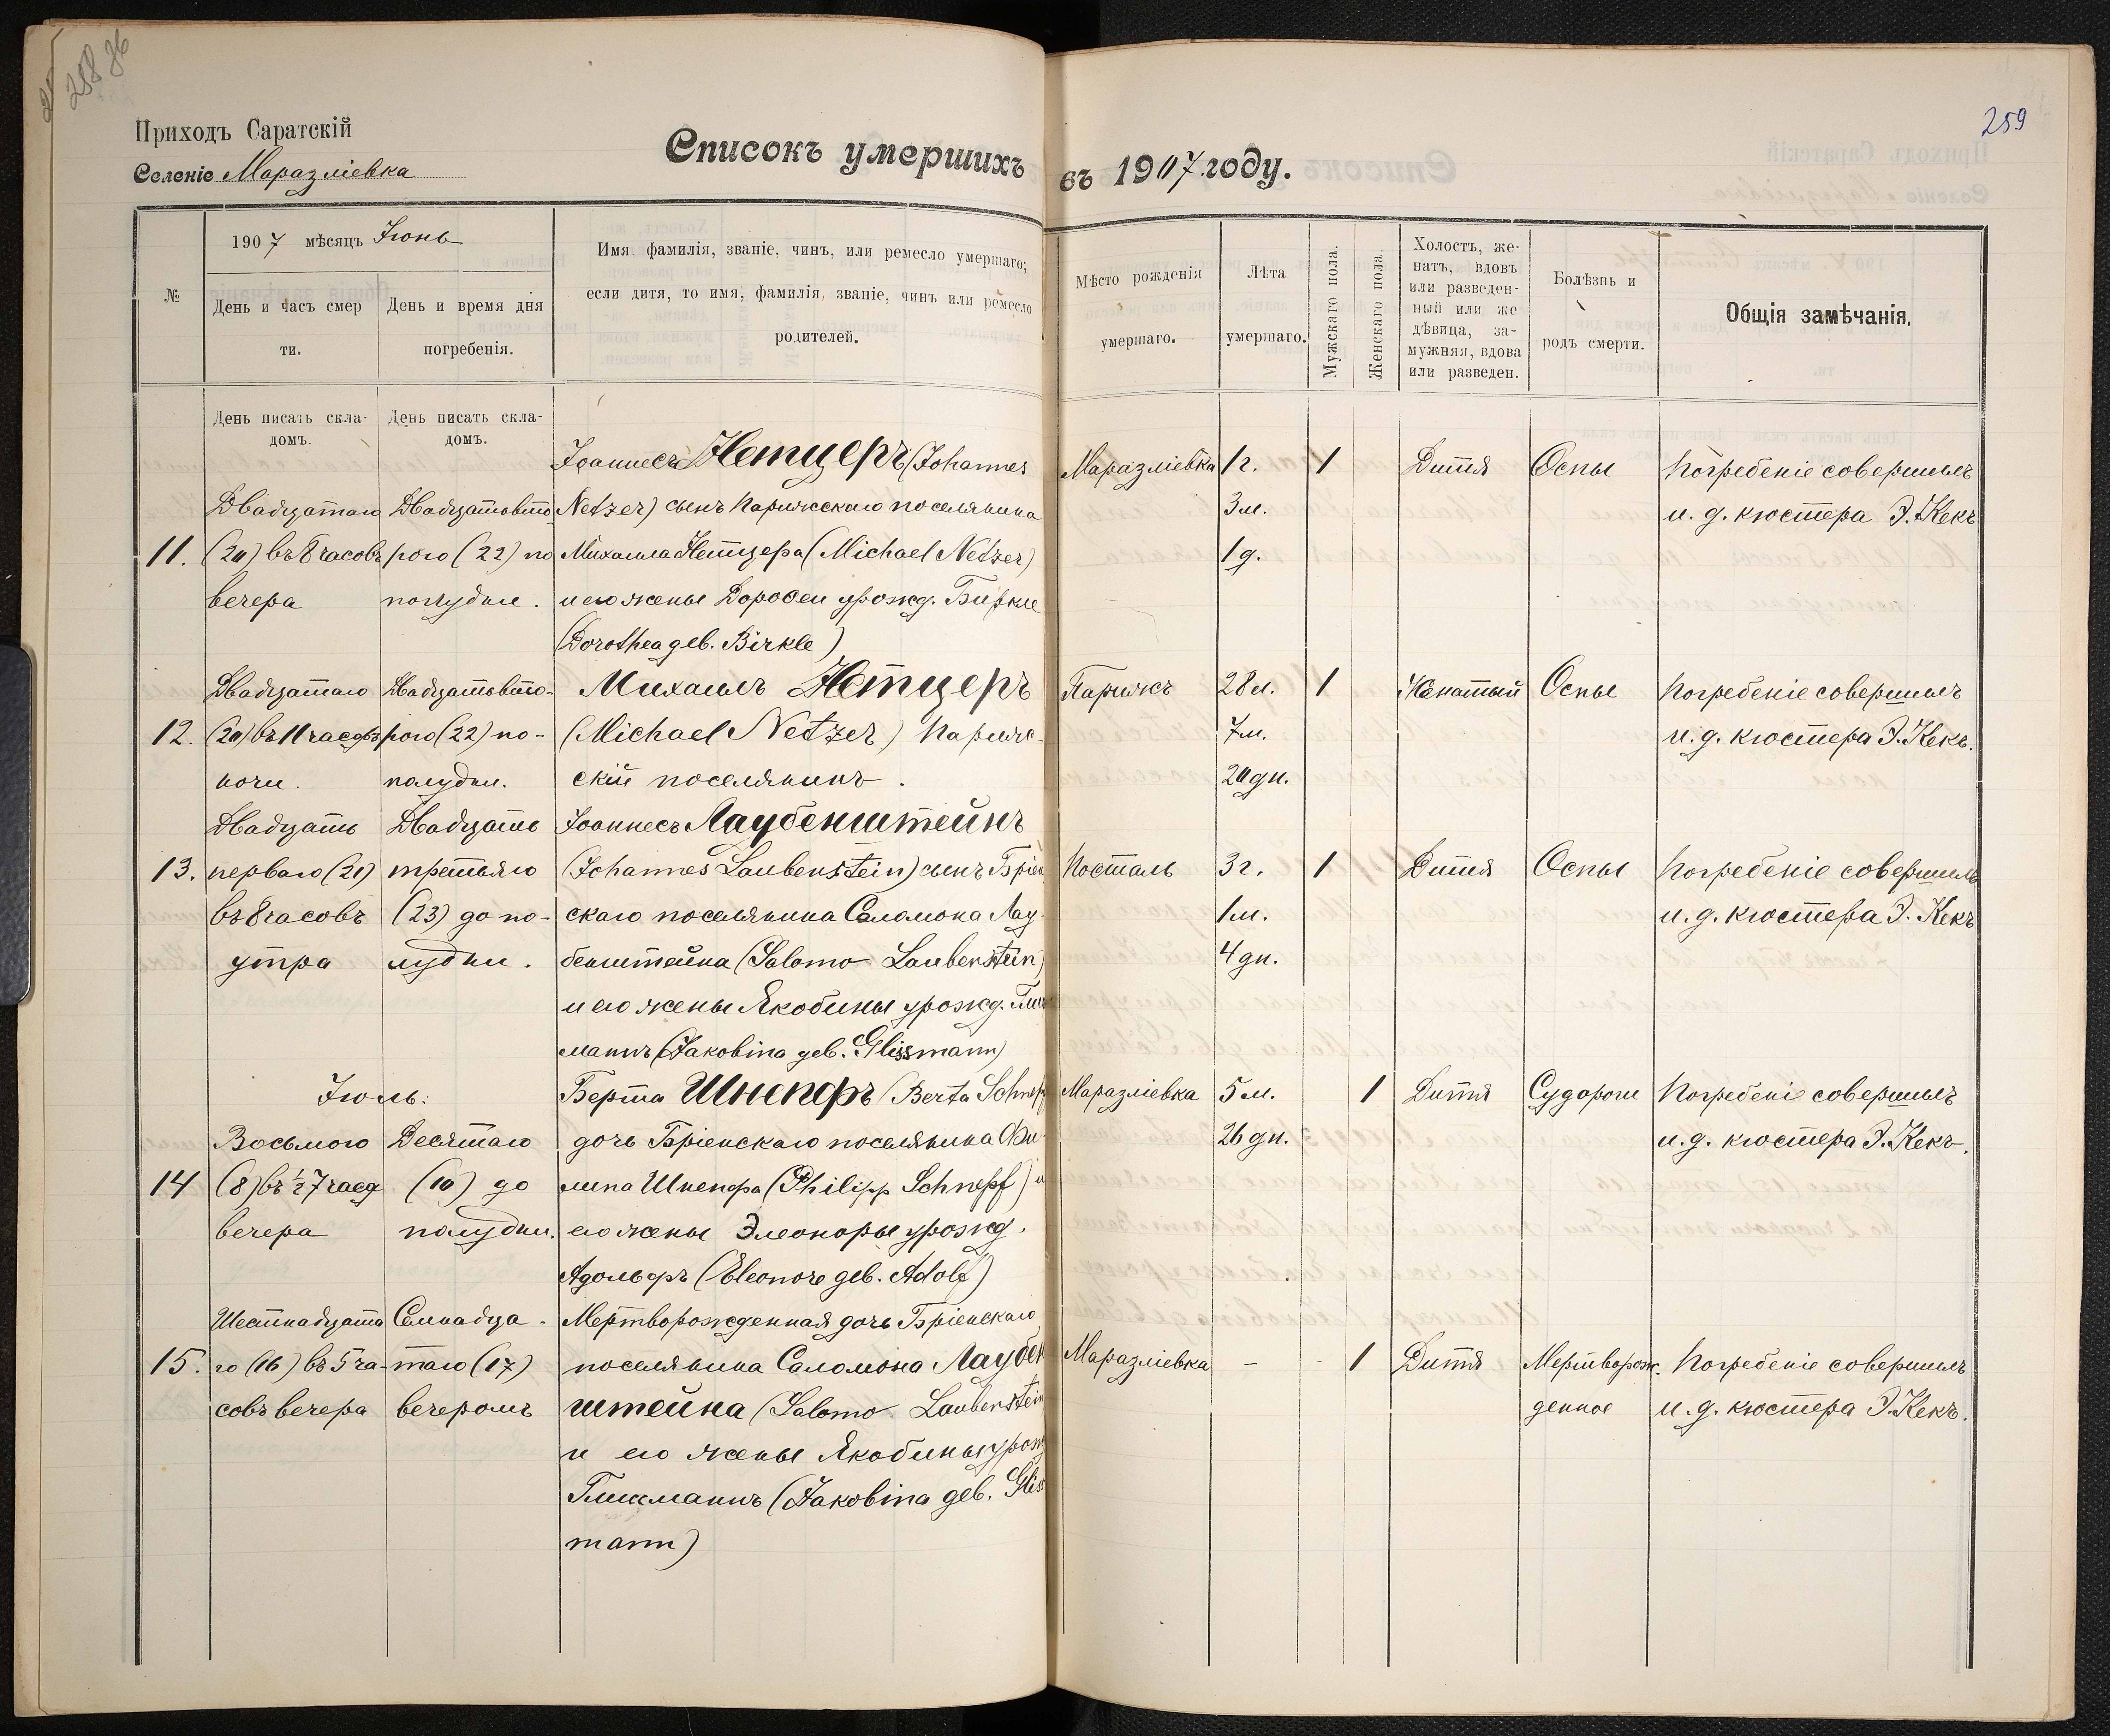 258 об
259
Приходъ Саратскій
Селеніе Маразліевка
Списокъ умершихъ въ 1907 году.
№
1907 мѣсяцъ Іюнь
День и часъ смерти.
День и время дня погребенія.
Имя, фамилія, званіе, чинъ, или ремесло умершаго;
если дитя, то имя, фамилія, званіе, чинъ или ремесло
родителей.
Мѣсто рожденія
умершаго.
Лѣта
умершаго.
Мужскаго пола.
Женскаго пола.
Холостъ, же-
натъ, вдовъ
или разведен-
ный или же
дѣвица, за-
мужняя, вдова
или разведен.
Болѣзнь и
родъ смерти.
Общія замѣчанія.
День писать скла-
домъ.
День писать скла-
домъ.
11.
Двадцатаго
(20) въ 8 часовъ
вечера
Двадцатовто-
рого (22) по
полудни.
Іоаннесъ Нетцеръ (Johannes
Netzer) сынъ Парижскаго поселянина
Михаила Нетцера (Michael Netzer)
и его жены Доротеи урожд. Биркле
(Dorothea geb. Birkle)
Маразліевка
1 г.
3 м.
1 д.
1
Дитя
Оспы
Погребеніе совершилъ
и. д. кюстера Э. Кекъ
12.
Двадцатаго
(20) въ 11 часовъ
ночи.
Двадцатовто-
рого (22) по-
полудни.
Михаилъ Нетцеръ
(Michael Netzer) Париж-
скій поселянинъ.
Парижъ
28 л.
7 м.
20 дн.
1
Женатый
Оспы
Погребеніе совершилъ
и. д. кюстера Э. Кекъ.
13.
Двадцать
перваго (21)
въ 8 часовъ
утра
Двадцать
третьяго
(23) до по-
лудни.
Іоаннесъ Лаубенштейнъ
(Johannes Laubenstein) сынъ Бріен
скаго поселянина Саломона Лау-
бенштейна (Salomo Laubenstein)
и его жены Якобины урожд. Глис
манъ (Jakobina geb. Glissmann)
Посталь
3 г.
1 м.
4 дн.
1
Дитя
Оспы
Погребеніе совершилъ
и. д. кюстера Э. Кекъ
Іюль:
14
Восьмого
(8) въ ½ 7 часа
вечера
Десятаго
(10) до
полудни.
Берта Шнепфъ (Berta Schnepf
дочь Бріенскаго поселянина Фи-
липа Шнепфа (Philipp Schnepf) и
его жены Элеоноры урожд.
Адольфъ (Eleonore geb. Adolf)
Маразліевка
5 м.
26 дн.
1
Дитя
Судороги
Погребеніе совершилъ
и. д. кюстера Э. Кекъ.
15.
Шестнадцата
го (16) въ 5 ча-
совъ вечера
Семнадца-
таго (17)
вечеромъ
Мертворожденная дочь Бріенскаго
поселянина Саломона Лаубен
штейна (Salomo Laubenstein
и его жены Якобины урожд
Глисманнъ (Jakobina geb. Glis
mann)
Маразліевка
-
1
Дитя
Мертворож-
денное
Погребеніе совершилъ
и. д. кюстера Э. Кекъ.